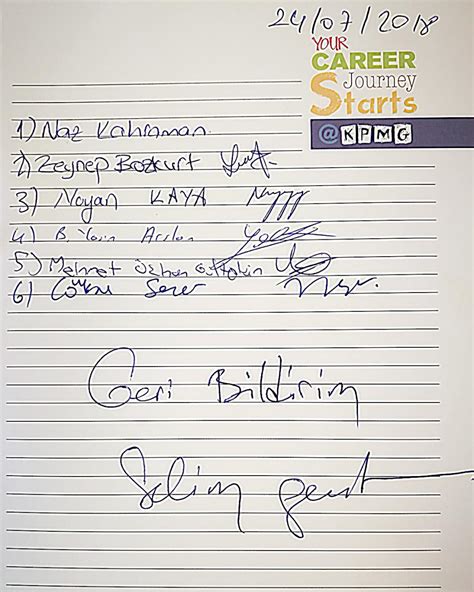 24/07/2018
YOUR
CAREER
Journey
Starts
@KPMG
1) Naz Kahraman
2) Zeynep Bozkurt
3) Noyan KAYA
4) B. Arslan
5) Mehmet
6) Sezer
Geri Bildirim
Selim